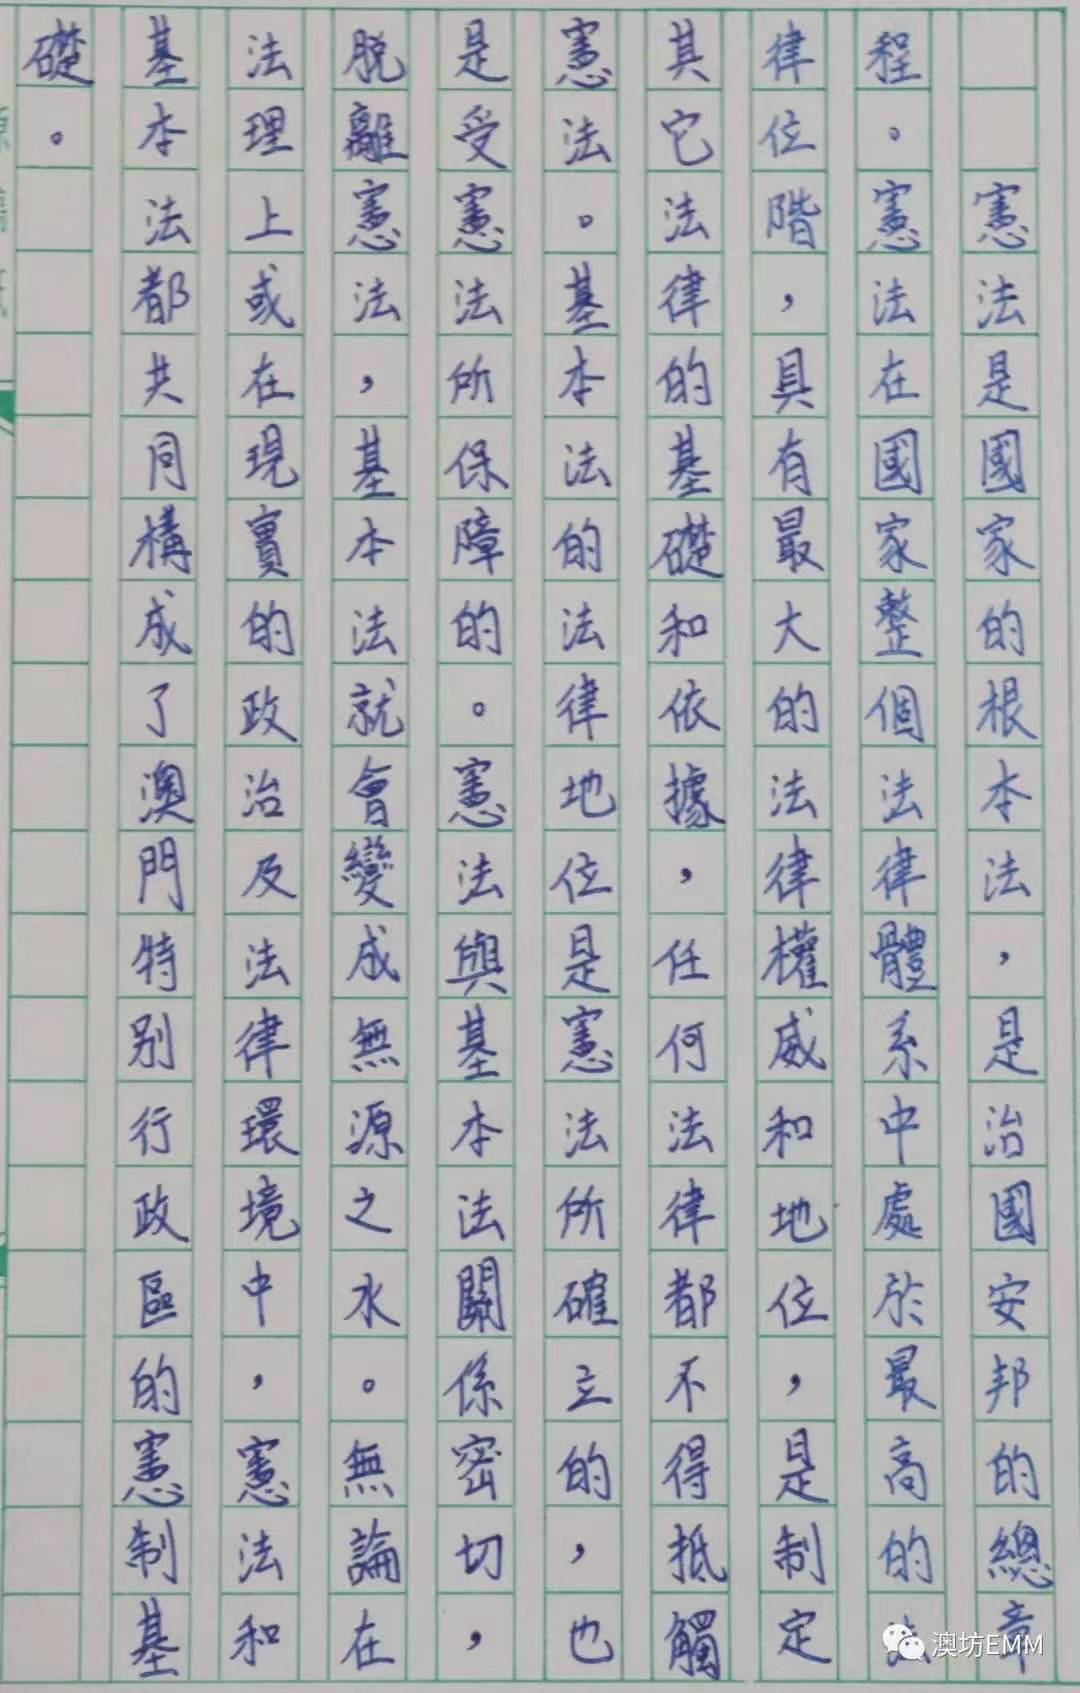 憲法是國家的根本法，是治國安邦的總章
程。憲法在國家整個法律體系中處於最高的法
律位階，具有最大的法律權威和地位，是制定
其它法律的基礎和依據，任何法律都不得抵觸
憲法。基本法的法律地位是憲法所確立的，也
是受憲法所保障的。憲法與基本法關係密切，
脫離憲法，基本法就會變成無源之水。無論在
法理上或在現實的政治及法律環境中，憲法和
基本法都共同構成了澳門特別行政區的憲制基
礎。
澳坊EMM